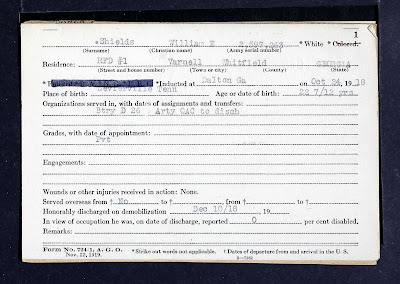 1
*Shields William E 2,597,963 *White *Colored.
(Surname) (Christian name) (Army serial number)
Residence: RFD #1 Varnell Whitfield GEORGIA
(Street and house number) (Town or city) (County) (State)
*Inducted at Dalton Ga on Oct 24, 1918
Place of birth: Sevierville Tenn Age or date of birth: 22 7/12 yrs.
Organizations served in, with dates of assignments and transfers:
Btry D 26 Arty CAC to disch
Grades, with date of appointment:
Pvt
Engagements:
Wounds or other injuries received in action: None.
Served overseas from † No to † (from † to †
Honorably discharged on demobilization Dec 10/18 19
In view of occupation he was, on date of discharge, reported 0 per cent disabled.
Remarks:
Form No. 724-1, A. G. O. *Strike out words not applicable. † Dates of departure from and arrival in the U. S.
Nov. 22, 1919.